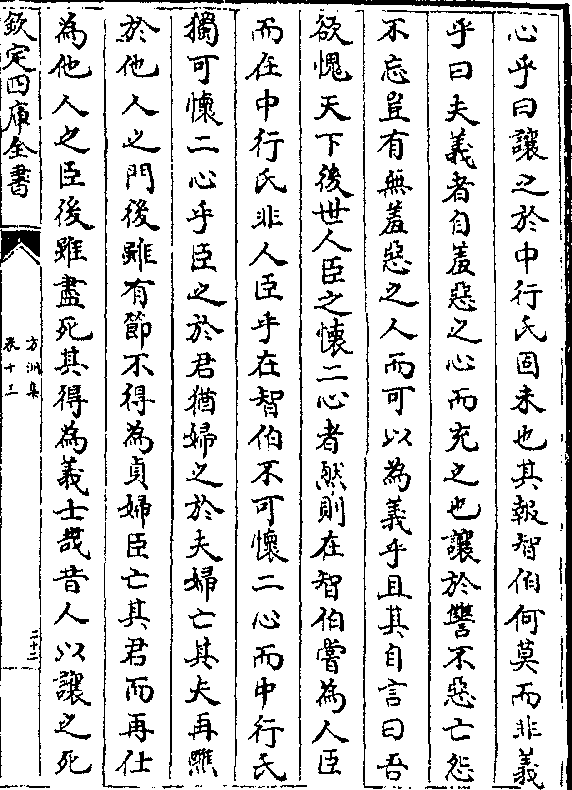 心乎曰讓之於中行氏固未也其報智伯何莫而非義
乎曰夫義者自羞惡之心而充之也讓於讐不惡亡怨
不忘豈有無羞惡之人而可以為義乎且其自言曰吾
欲愧天下後世人臣之懷二心者然則在智伯嘗為人臣
而在中行氏非人臣乎在智伯不可懷二心而中行氏
獨可懷二心乎臣之於君猶婦之於夫婦亡其夫再醮
於他人之門後雖有節不得為貞婦臣亡其君而再仕
為他人之臣後雖盡死其得為義士哉昔人以讓之死
欽定四庫全書
方洲集
卷十三
二十二